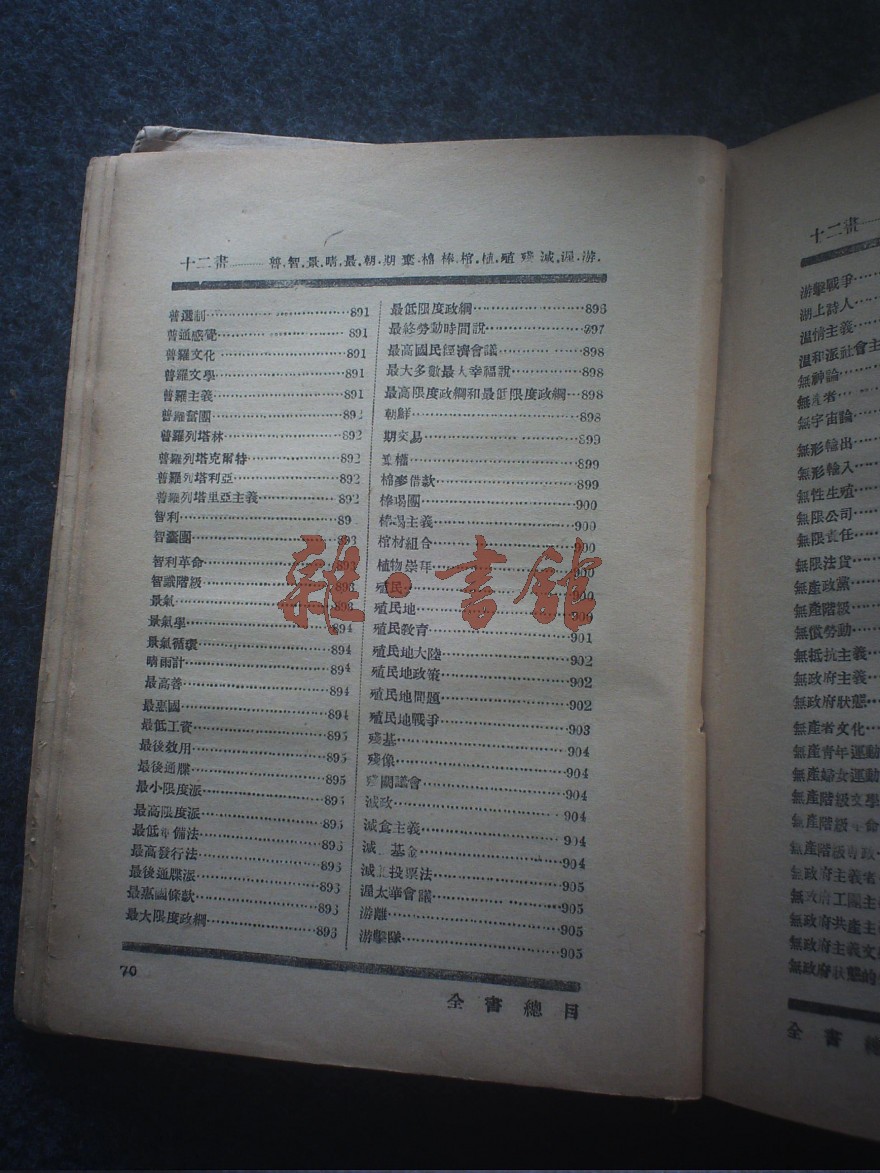 十二畫——普.智.景.晴.最.朝.期.棄.棉.棒.棺.植.殖.殘.減.渥.游.
普選制⋯⋯891
普通感覺⋯⋯891
普羅文化⋯⋯891
普羅文學⋯⋯891
普羅主義⋯⋯891
普羅奮團⋯⋯892
普羅列塔林⋯⋯892
普羅列塔克爾特⋯⋯892
普羅列塔利亞⋯⋯892
普羅列塔里亞主義⋯⋯892
智利⋯⋯89
智囊團⋯⋯893
智利革命⋯⋯893
智識階級⋯⋯893
景氣⋯⋯893
景氣學⋯⋯894
景氣循環⋯⋯894
晴雨計⋯⋯894
最高善⋯⋯894
最惠國⋯⋯894
最低工資⋯⋯895
最後效用⋯⋯895
最後通牒⋯⋯895
最小限度派⋯⋯895
最高限度派⋯⋯895
最低準備法⋯⋯896
最高發行法⋯⋯896
最後通牒派⋯⋯896
最惠國條款⋯⋯896
最大限度政綱⋯⋯896
最低限度政綱⋯⋯896
最終勞動時間說⋯⋯897
最高國民經濟會議⋯⋯898
最大多數最大幸福說⋯⋯898
最高限度政綱和最低限度政綱⋯⋯898
朝鮮⋯⋯898
期交易⋯⋯899
棄權⋯⋯899
棉麥借款⋯⋯899
棒喝團⋯⋯900
棒喝主義⋯⋯900
棺材組合⋯⋯900
植物崇拜⋯⋯900
殖民⋯⋯900
殖民地⋯⋯900
殖民教育⋯⋯901
殖民地大陸⋯⋯902
殖民地政策⋯⋯902
殖民地問題⋯⋯902
殖民地戰爭⋯⋯903
殘基⋯⋯904
殘像⋯⋯904
殘闕議會⋯⋯904
減政⋯⋯904
減食主義⋯⋯904
減 基金⋯⋯904
減 投票法⋯⋯905
渥太華會議⋯⋯905
游離⋯⋯905
游擊隊⋯⋯905
70
全書總目
雜·書館
十二畫—
游擊戰爭⋯⋯
湖上詩人⋯⋯
温情主義⋯⋯
温和派社會主
無神論⋯⋯
無產者⋯⋯
無宇宙論⋯⋯
無形輸出⋯⋯
無形輸入⋯⋯
無性生殖⋯⋯
無限公司⋯⋯
無限責任⋯⋯
無限法貨⋯⋯
無產政黨⋯⋯
無產階級⋯⋯
無償勞動⋯⋯
無抵抗主義⋯⋯
無政府主義⋯⋯
無政府狀態⋯⋯
無產者文化⋯⋯
無產青年運動
無產婦女運動
無產階級文學
無產階級革命
無產階級專政
無政府主義者
無政府工團主
無政府共產主
無政府主義文
無政府狀態的
全書總